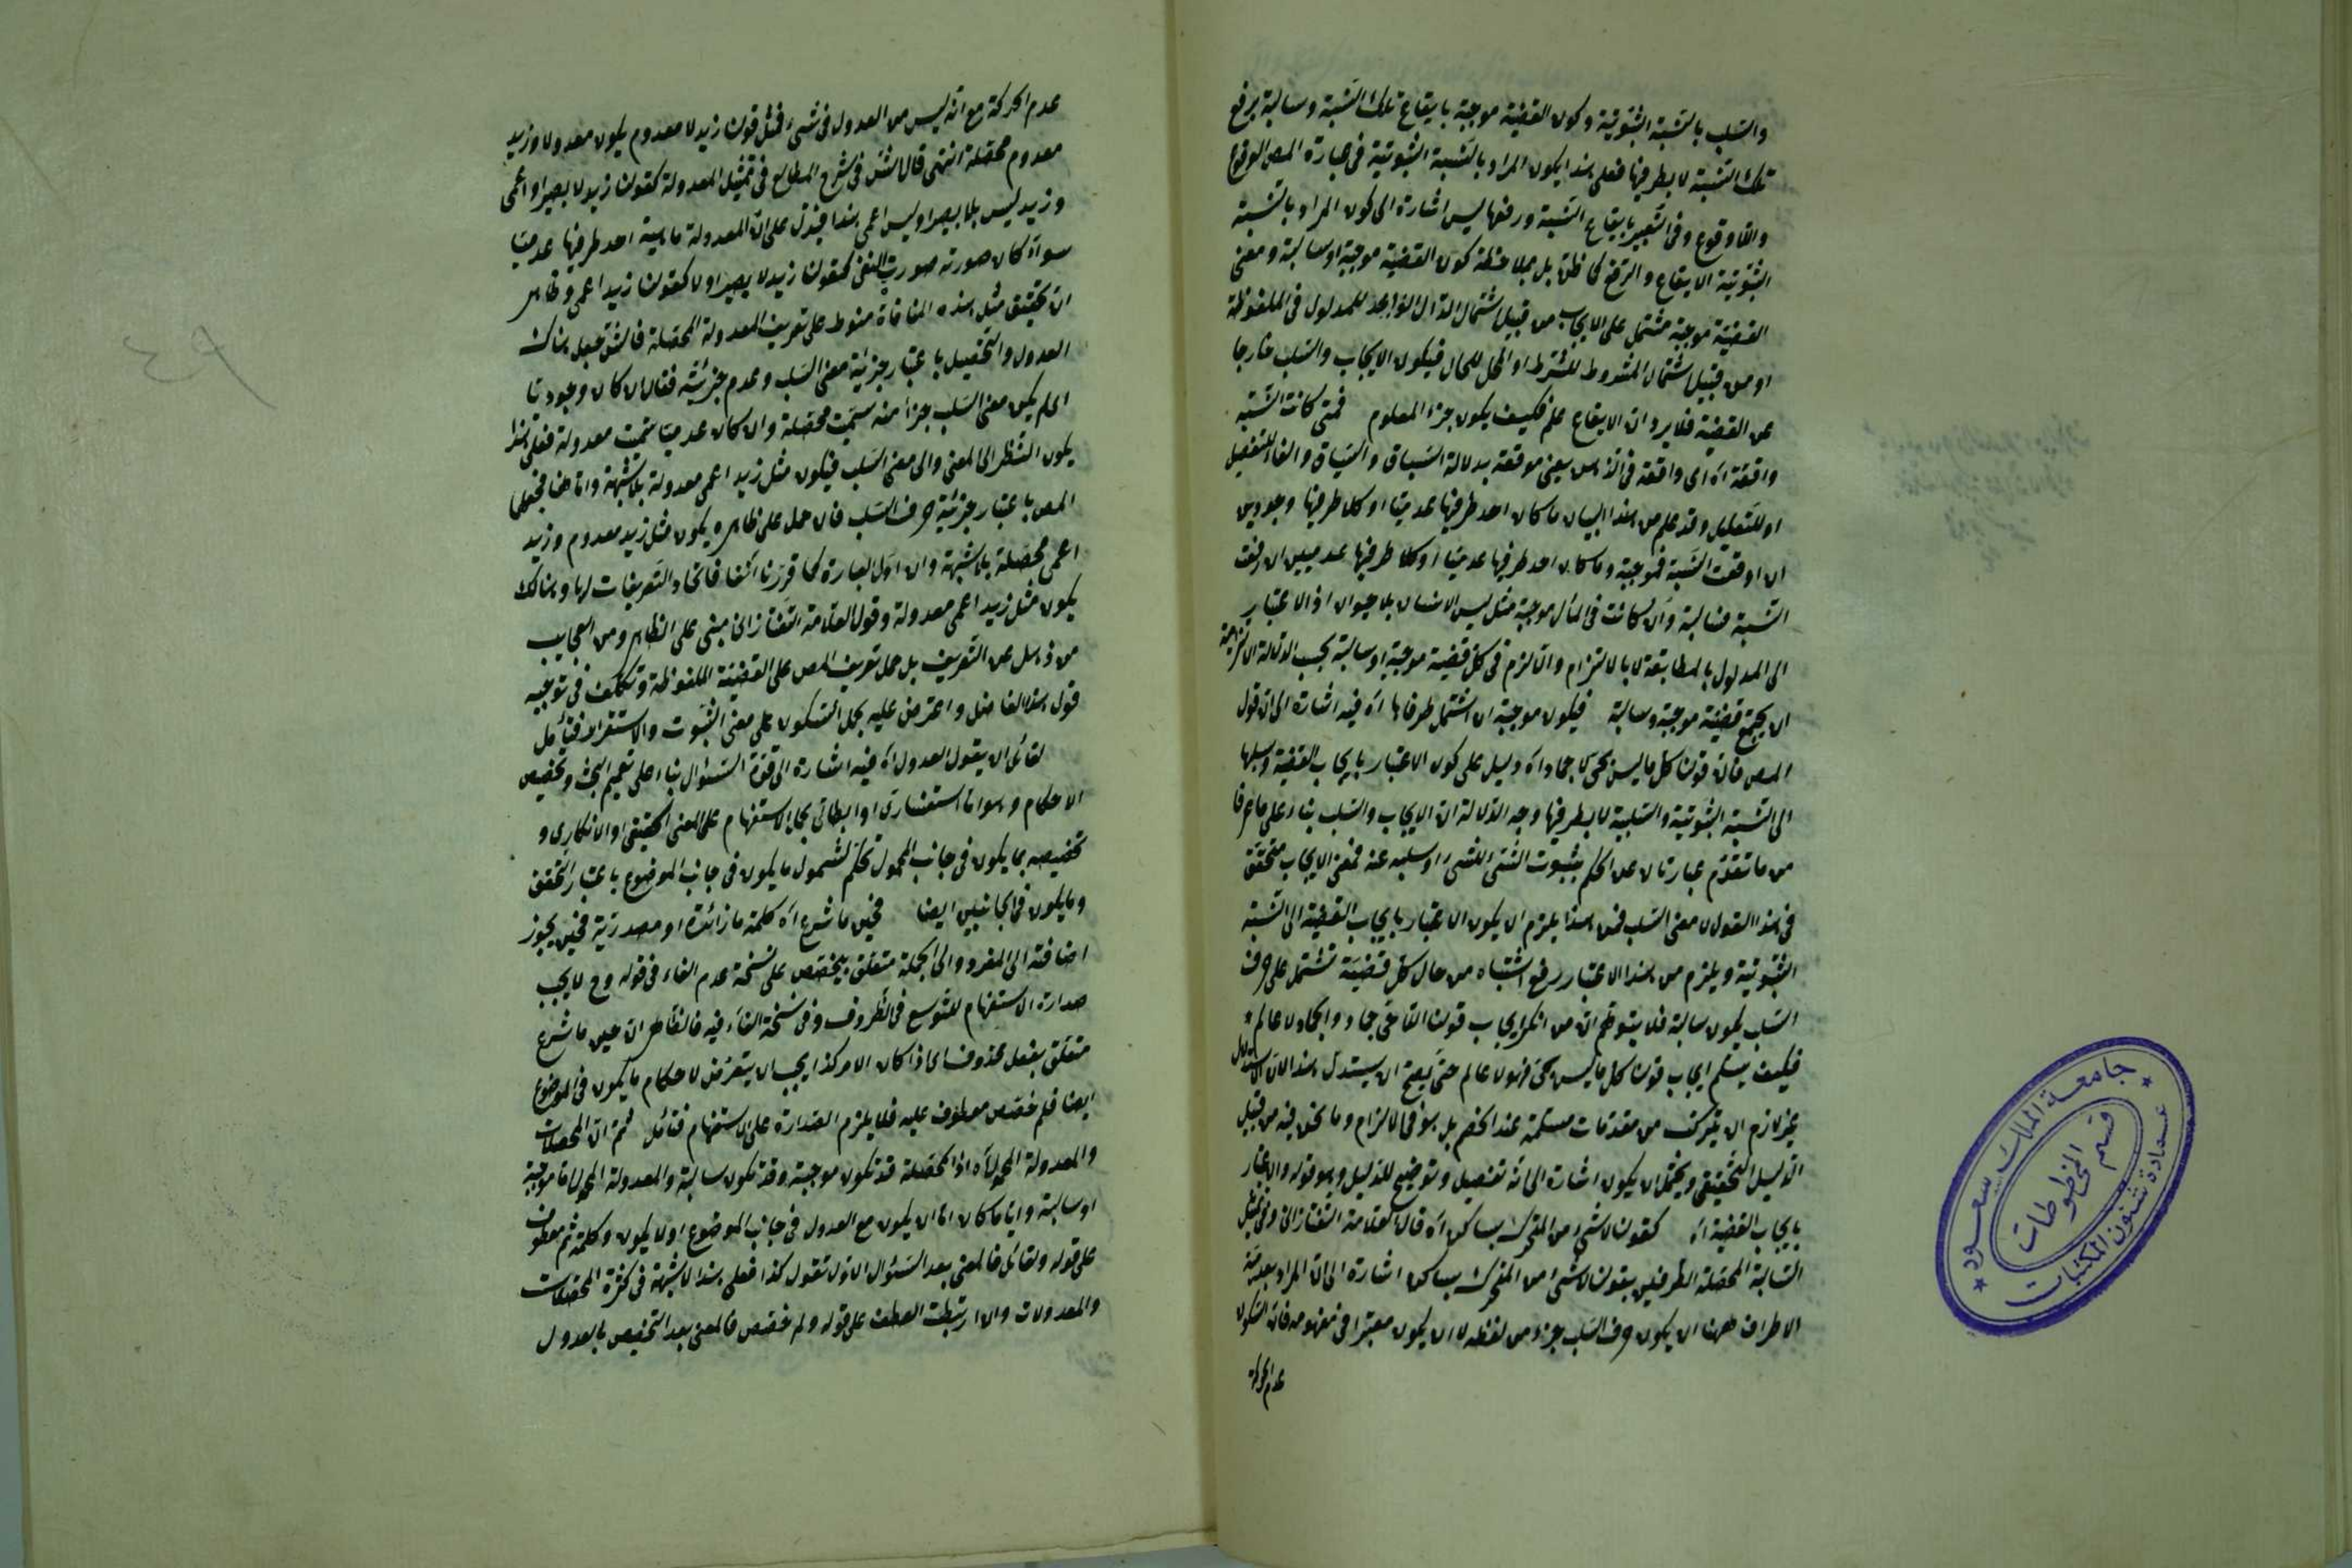 والسلب بالنسبة الثبوتية وكون القضية موجبة بايقاع تلك النسبة وسالبة برفع
تلك النسبة لا بطرفيها فعلى هذا يكون المراد بالنسبة الثبوتية في عبارة المص الوقوع
واللاوقوع وفي التعبير بايقاع النسبة ورفعها ليس اشارة الى كون المراد بالنسبة
الثبوتية الايقاع والرفع كما ظن بل بملاحظة كون القضية موجبة او سالبة ومعنى
القضية موجبة مشتمل على الايجاب من قبيل اشتمال الدال الواحد للمدلول في الملفوظة
او من قبيل اشتمال المشروط للشرط او المحل للحال فيكون الايجاب والسلب خارجا
عن القضية فلا يرد ان الايقاع علم فكيف يكون جزأ المعلوم فمتى كانت النسبة
واقعة اه اى واقعة في الذهن يعنى موقعة بدلالة السباق والسياق والفاء للتفصيل
او للتعليل وقد علم من هذا البيان ما كان احد طرفيها عدميا او كلا طرفيها وجوديين
ان اوقعت النسبة فموجبة وما كان احد طرفيها عدميا او كلا طرفيها عدميين ان رفعت
النسبة فسالبة وان كانت في المأل موجبة مثل ليس الانسان بلا حيوان اذ الاعتبار
الى المدلول بالمطابقة لا بالالتزام والا لزم في كل قضية موجبة او سالبة بحسب الدلالة الالتزامية
ان يجتمع قضية موجبة وسالبة فيكون موجبة ان اشتمل طرفاها اه فيه اشارة الى ان قول
المص فان قولنا كل ما ليس بحى لا جماد اه دليل على كون الاعتبار بايجاب القضية وسلبها
الى النسبة الثبوتية والسلبية لا بطرفيها وجه الدلالة ان الايجاب والسلب بناء على ما عرفا
من ما تقدم عبارتان عن الحكم بثبوت الشئ للشئ او سلبه عنه فمعنى الايجاب متحقق
في هذا القول لا معنى السلب فمن هذا يلزم ان يكون الاعتبار بايجاب القضية الى النسبة
الثبوتية ويلزم من هذا الاعتبار رفع اشتباه من حال كل قضية تشتمل على حرف
السلب يكون سالبة فلا يتوهم ان من انكر ايجاب قولنا اللاحى جماد والجماد لا عالم
فكيف يسلم ايجاب قولنا كل ما ليس بحى فهو لا عالم حتى يصح ان يستدل بهذا لان الاستدلال
غير لازم ان يتركب من مقدمات مسلمة عند الخصم بل هو في الالزام وما نحن فيه من قبيل
الدليل التحقيقى ويحتمل ان يكون اشارة الى انه تفصيل وتوضيح للدليل وهو قوله والاعتبار
بايجاب القضية اه كقولنا لا شئ من المتحرك بساكن اه قال العلامة التفتازانى وفي تمثيل
السالبة المحصلة الطرفين بقولنا لا شئ من المتحرك بساكن اشارة الى ان المراد بعدمية
الاطراف ههنا ان يكون حرف السلب جزء من لفظه لا ان يكون معتبرا في مفهومه فان السكون
عدم الحركة
عدم الحركة مع انه ليس من العدول في شئ فمثل قولنا زيد لا معدوم يكون معدولا وزيد
معدوم محصلة انتهى قال الش في شرح المطالع في تمثيل المعدولة كقولنا زيد لا بصير او اعمى
وزيد ليس بلا بصير او ليس اعمى هذا فيدل على ان المعدولة ماهية احد طرفيها عدميا
سواء كان صورته صورت النفى كقولنا زيد لا بصير او لا كقولنا زيد اعمى وظاهر
ان تحقيق مثل هذه المنافاة منوط على تعريف المعدولة المحصلة فالش جعل هناك
العدول والتحصيل باعتبار جزئية معنى السلب وعدم جزئيته فقال ان كان وجوديا
اى لم يكن معنى السلب جزأ منه سميت محصلة وان كان عدميا سميت معدولة فعلى هذا
يكون النظر الى المعنى والى معنى السلب فيكون مثل زيد اعمى معدولة بلا شبهة واما هنا فجعلها
المص باعتبار جزئية حرف السلب فان حمل على ظاهره يكون مثل زيد معدوم وزيد
اعمى محصلة بلا شبهة وان اول العبارة كما قررنا انفا فاتحاد التعريفات لها وهنالك
يكون مثل زيد اعمى معدولة وقول العلامة التفتازانى مبنى على الظاهر ومن العجايب
من ذهل عن التعريف بل حمل تعريف المص على القضية الملفوظة وتكلف في توجيه
قول هذا الفاضل واعترض عليه بحمل السكون على معنى الثبوت والاستقرار فتأمل
لقائل ان يقول العدول اه فيه اشارة الى قوة السؤال بناء على تعميم البحث وتخصيص
الاحكام وهو اما استفسارى او ابطالى بحمل الاستفهام على المعنى الحقيقى او الانكارى و
تخصيصه بما يكون في جانب المحمول تحكم لشمول ما يكون في جانب الموضوع باعتبار التحقق
وما يكون في الجانبين ايضا فحين ما شرع اه كلمة ما زائدة او مصدرية فحين يجوز
اضافته الى المفرد والى الجملة متعلق بيخصص على نسخة عدم الفاء في قوله وح لا يجب
صدارة الاستفهام للتوسع في الظروف وفي نسخة الفاء فيه فالظاهر ان حين ما شرع
متعلق بفعل محذوف اى اذا كان الامر كذا يجب ان يتعرض لاحكام ما يكون في الموضوع
ايضا فلم خصص معطوف عليه فلا يلزم الصدارة على الاستفهام فتأمل ثم ان المحصلات
والمعدولة المحمول اه اذ المحصلة قد تكون موجبة وقد تكون سالبة والمعدولة المحمول اما موجبة
او سالبة وايا ما كان اما ان يكون مع العدول في جانب الموضوع او لا يكون وكلمة ثم معطوف
على قوله ولقائل فالمعنى بعد السؤال الاول نقول كذا فعلى هذا لا شبهة في كثرة المحصلات
والمعدولات وان ارتبطت العطف على قوله ولم خصص فالمعنى بعد التخصيص بالعدول
٩٤
جامعة الملك سعود
قسم المخطوطات
عمادة شئون المكتبات